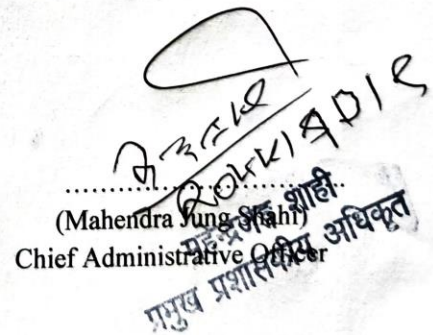 ....................
(Mahendra Jung Shahi)
Chief Administrative Officer
महेन्द्रजङ्ग शाही
प्रमुख प्रशासकीय अधिकृत